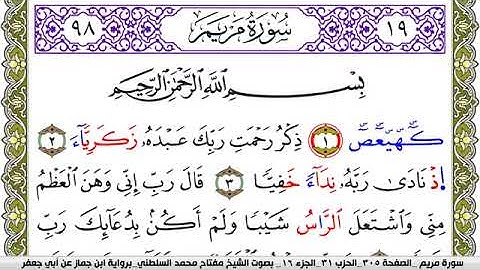 ١٩ سُورَةُ مَرْيَم ٩٨
بِسْمِ اللَّهِ الرَّحْمَٰنِ الرَّحِيمِ
كٓهيعٓصٓ ١ ذِكْرُ رَحْمَتِ رَبِّكَ عَبْدَهُۥ زَكَرِيَّآءَ ٢
إِذْ نَادَىٰ رَبَّهُۥ نِدَآءً خَفِيًّا ٣ قَالَ رَبِّ إِنِّى وَهَنَ ٱلْعَظْمُ
مِنِّى وَٱشْتَعَلَ ٱلرَّاسُ شَيْبًا وَلَمْ أَكُنۢ بِدُعَآئِكَ رَبِّ
سورة مريم _الصفحة ٣٠٥_الحزب ٣١_الجزء ١٦_ بصوت الشيخ مفتاح محمد السلطني_برواية ابن جماز عن أبي جعفر